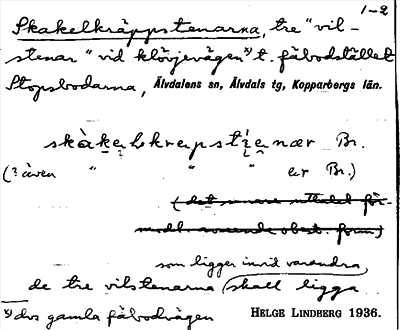 1-2
Skakelkräppstenarna, tre "vil-
stenar" vid klövjevägen x) t. fäbodstället
Stopsbodarna, Älvdalens sn, Älvdals tg, Kopparbergs län.
skàkelskrepstìenær Br.
(? även " " " er Br.)
(det senare uttalet för-
modl. avseende obest. form.)
som ligga invid varandra,
de tre vilstenarna skall ligga
x) dvs gamla fäbodvägen HELGE LINDBERG 1936.